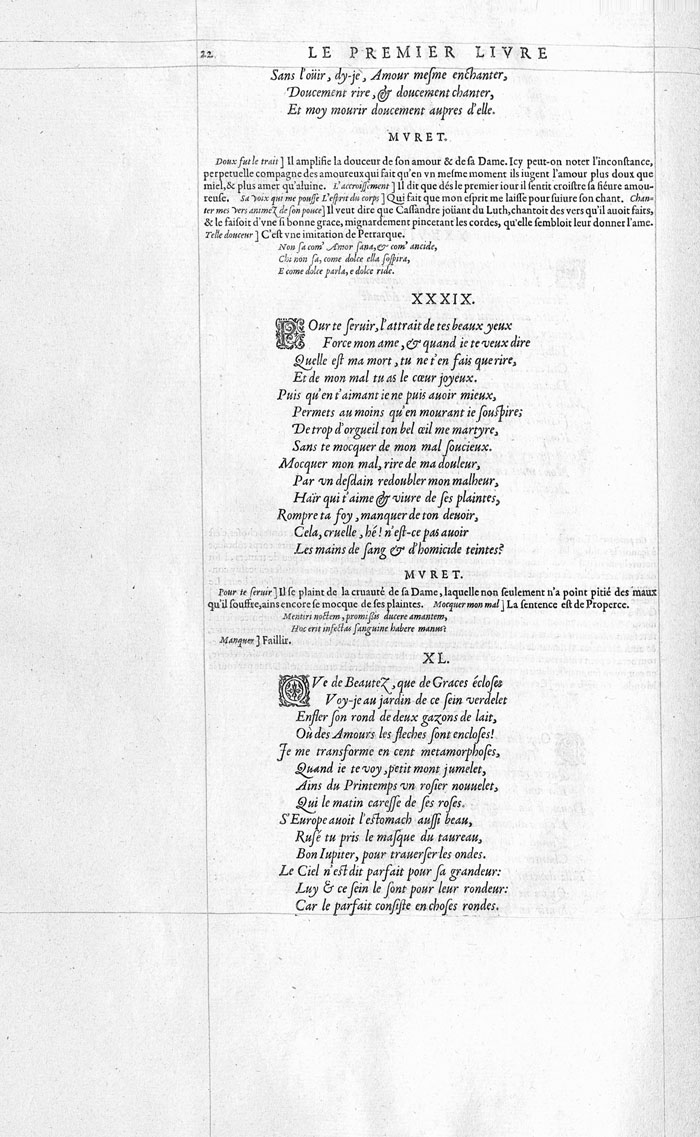 22. LE PREMIER LIVRE
Sans l'oüir, dy-je, Amour mesme enchanter,
Doucement rire, & doucement chanter,
Et moy mourir doucement aupres d'elle.
MVRET.
Doux fut le trait] Il amplifie la douceur de son amour & de sa Dame. Icy peut-on noter l'inconstance,
perpetuelle compagne des amoureux qui fait qu'en vn mesme moment ils iugent l'amour plus doux que
miel, & plus amer qu'aluine. L'accroissement] Il dit que dés le premier iour il sentit croistre sa fiéure amou-
reuse. Sa voix qui me pousse L'esprit du corps] Qui fait que mon esprit me laisse pour suiure son chant. Chan-
ter mes vers animez de son pouce] Il veut dire que Cassandre joüant du Luth, chantoit des vers qu'il auoit faits,
& le faisoit d'vne si bonne grace, mignardement pincetant les cordes, qu'elle sembloit leur donner l'ame.
Telle douceur] C'est vne imitation de Petrarque.
Non sa com' Amor sana, & com' ancide,
Chi non sa, come dolce ella sospira,
E come dolce parla, e dolce ride.
XXXIX.
POur te seruir, l'attrait de tes beaux yeux
Force mon ame, & quand ie te veux dire
Quelle est ma mort, tu ne t'en fais que rire,
Et de mon mal tu as le cœur joyeux.
Puis qu'en t'aimant ie ne puis auoir mieux,
Permets au moins qu'en mourant ie souspire;
De trop d'orgueil ton bel œil me martyre,
Sans te mocquer de mon mal soucieux.
Mocquer mon mal, rire de ma douleur,
Par vn desdain redoubler mon malheur,
Haïr qui t'aime & viure de ses plaintes,
Rompre ta foy, manquer de ton deuoir,
Cela, cruelle, hé! n'est-ce pas auoir
Les mains de sang & d'homicide teintes?
MVRET.
Pour te seruir] Il se plaint de la cruauté de sa Dame, laquelle non seulement n'a point pitié des maux
qu'il souffre, ains encore se mocque de ses plaintes. Mocquer mon mal] La sentence est de Properce.
Mentiri noctem, promissis ducere amantem,
Hoc erit infectas sanguine habere manus?
Manquer] Faillir.
XL.
QVe de Beautez, que de Graces écloses
Voy-je au jardin de ce sein verdelet
Enfler son rond de deux gazons de lait,
Où des Amours les fleches sont encloses!
Je me transforme en cent metamorphoses,
Quand ie te voy, petit mont jumelet,
Ains du Printemps vn rosier nouuelet,
Qui le matin caresse de ses roses.
S'Europe auoit l'estomach aussi beau,
Rusé tu pris le masque du taureau,
Bon Iupiter, pour trauerser les ondes.
Le Ciel n'est dit parfait pour sa grandeur:
Luy & ce sein le sont pour leur rondeur:
Car le parfait consiste en choses rondes.